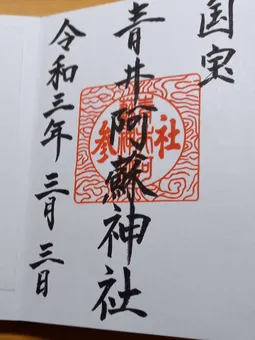 国宝
青井阿蘇神社
社参
令和三年三月三日